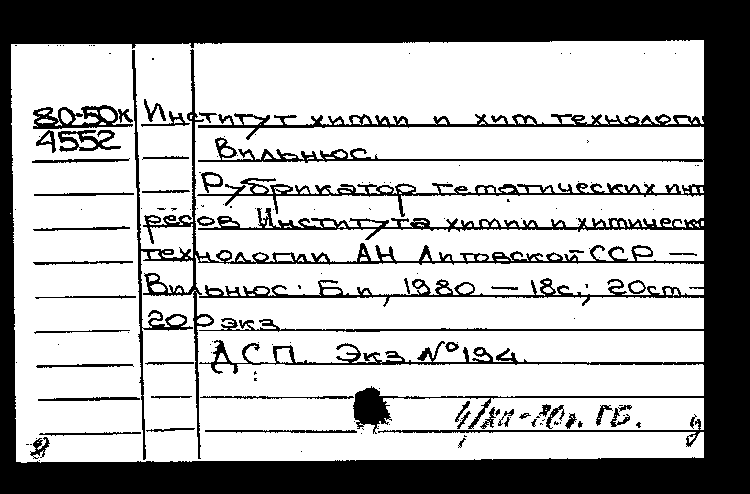 80-50к Институт химии и хим. технологии
4552
Вильнюс.
Рубрикатор тематических инт
ресов Института химии и химическо
технологии АН Литовской ССР —
Вильнюс: Б.и, 1980. — 18с.; 20см. —
200 экз
ДСП. Экз. №194.
4/XII-80г. ГБ.